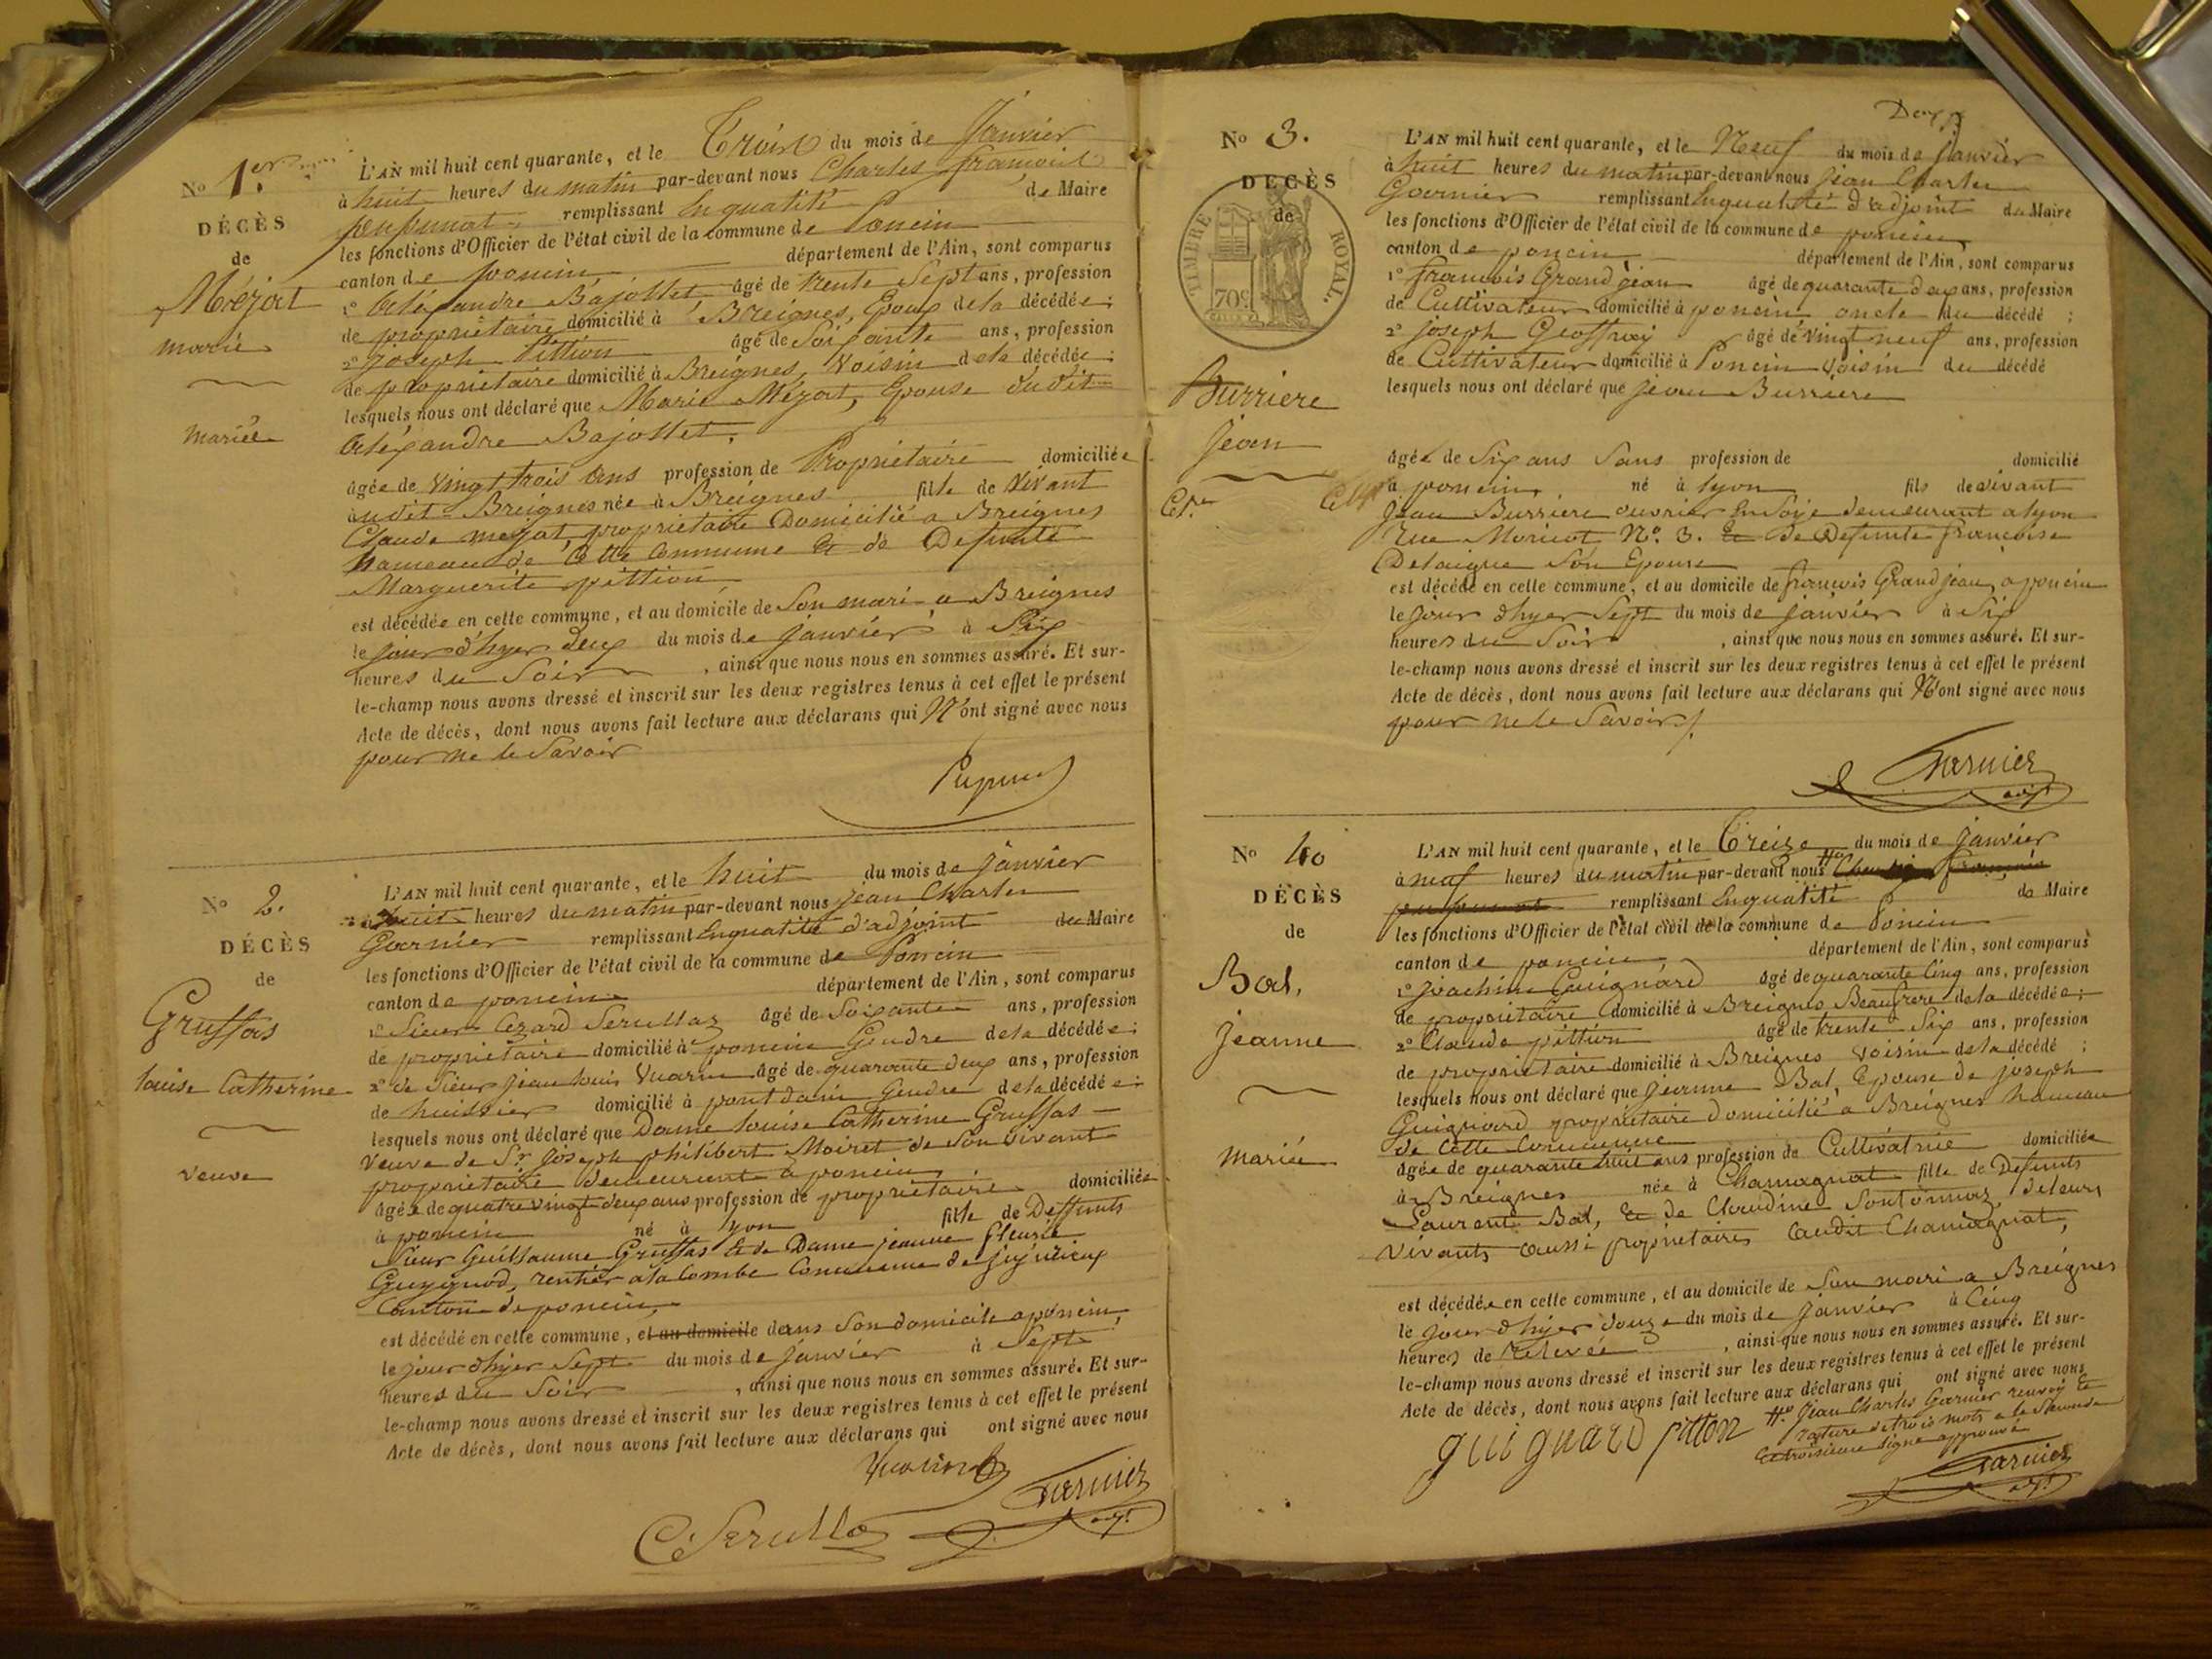 No 1.er
DÉCÈS
de
Méjat
marie
mariée
L'AN mil huit cent quarante, et le Trois du mois de Janvier
à huit heures du matin par-devant nous Charles françois
pupunat remplissant En qualité de Maire
les fonctions d'Officier de l'état civil de la commune de Poncin
canton de poncin département de l'Ain, sont comparus
1o Aléxandre Bajollet âgé de trente Sept ans, profession
de propriétaire domicilié à Breignes, Epoux de la décédée;
2o Joseph Pittion âgé de Soixante ans, profession
de propriétaire domicilié à Breignes, Voisin de la décédée;
lesquels nous ont déclaré que Marie Méjat, Epouse dudit
Aléxandre Bajollet,
âgée de vingt trois ans profession de Propriétaire domiciliée
audit Breignes née à Breignes fille de vivant
Claude mejat, propriétaire Domicilié a Breignes
hameau de Cette Commune Et de Defunte
Marguerite pittion
est décédée en cette commune, et au domicile de Son mari a Breignes
le jour d'hyer deux du mois de janvier à Six
heures du Soir, ainsi que nous nous en sommes assuré. Et sur-
le-champ nous avons dressé et inscrit sur les deux registres tenus à cet effet le présent
Acte de décès, dont nous avons fait lecture aux déclarans qui N'ont signé avec nous
pour ne le Savoir
No 2.
DÉCÈS
de
Gruffas
louise Catherine
veuve
L'AN mil huit cent quarante, et le huit du mois de janvier
à huit heures du matin par-devant nous jean Charles
Garnier remplissant En qualité d'adjoint du Maire
les fonctions d'Officier de l'état civil de la commune de Poncin
canton de poncin département de l'Ain, sont comparus
1o Sieur Cezard Serullaz âgé de Soixante ans, profession
de propriétaire domicilié à poncin Gendre de la décédée;
2o de Sieur jean louis Vuarin âgé de quarante deux ans, profession
de huissier domicilié à pont dain Gendre de la décédée;
lesquels nous ont déclaré que Dame louise Catherine Gruffas
veuve de Sr. joseph philibert Moiret de Son vivant
propriétaire demeurant a poncin
âgée de quatre vingt deux ans profession de propriétaire domiciliée
à poncin né à lyon fille de Deffunts
Sieur Guillaume Gruffas Et de Dame jeanne fleurie
Guygnod, rentier a la Combe Commune de jujurieux
Canton de poncin,
est décédé en cette commune, et au domicile dans Son domicile a poncin,
le jour d'hyer Sept du mois de janvier à Sept
heures du Soir, ainsi que nous nous en sommes assuré. Et sur-
le-champ nous avons dressé et inscrit sur les deux registres tenus à cet effet le présent
Acte de décès, dont nous avons fait lecture aux déclarans qui ont signé avec nous
Garnier
C Serulla
No 3.
DÉCÈS
de
TIMBRE ROYAL.
70c
Burriere
jean
L'AN mil huit cent quarante, et le Neuf du mois de janvier
à huit heures du matin par-devant nous jean Charles
Garnier remplissant En qualité d'adjoint du Maire
les fonctions d'Officier de l'état civil de la commune de poncin
canton de poncin département de l'Ain, sont comparus
1o francois Grandjean âgé de quarante deux ans, profession
de Cultivateur domicilié à poncin oncle du décédé;
2o joseph Geoffray âgé de vingt neuf ans, profession
de Cultivateur domicilié à Poncin Voisin du décédé
lesquels nous ont déclaré que jean Burriere
âgée de Six ans Sans profession de domicilié
à poncin, né à lyon fils de vivant
Jean Burriere ouvrier En Soye demeurant a lyon
Rue No. 3. Et de Defunte francoise
Delaigue Son Epouse
est décédé en cette commune, et au domicile de francois Grandjean, a poncin
le jour d'hyer Sept du mois de janvier à Six
heures du Soir, ainsi que nous nous en sommes assuré. Et sur-
le-champ nous avons dressé et inscrit sur les deux registres tenus à cet effet le présent
Acte de décès, dont nous avons fait lecture aux déclarans qui N'ont signé avec nous
pour ne le Savoir/.
Garnier
adjt
No 4o
DÉCÈS
de
Bal,
jeanne
mariée
L'AN mil huit cent quarante, et le Treize du mois de janvier
à neuf heures du matin par-devant nous Charles françois
pupunat remplissant En qualité de Maire
les fonctions d'Officier de l'état civil de la commune de Poncin
canton de poncin département de l'Ain, sont comparus
1o joachim Guignard âgé de quarante Cinq ans, profession
de propriétaire domicilié à Breignes Beaufrere de la décédée;
2o Claude pittion âgé de trente Six ans, profession
de propriétaire domicilié à Breignes voisin de la décédé;
lesquels nous ont déclaré que jeanne Bal, Epouse de joseph
Guignard propriétaire domicilié a Breignes hameau
de Cette Commune
âgée de quarante huit ans profession de Cultivatrice domiciliée
à Breignes née à Chamagnat fille de Defunts
Laurent Bal, Et de Claudine Sontonnaz, de leurs
vivants aussi propriétaires audit Chamagnat,
est décédée en cette commune, et au domicile de Son mari a Breignes
le jour d'hyer douze du mois de janvier à Cinq
heures de relevée, ainsi que nous nous en sommes assuré. Et sur-
le-champ nous avons dressé et inscrit sur les deux registres tenus à cet effet le présent
Acte de décès, dont nous avons fait lecture aux déclarans qui ont signé avec nous
guignard pitton
jean Charles Garnier renvoi Et
rature de trois mots a la Seconde
Et troisieme ligne approuvé
Garnier
adjt